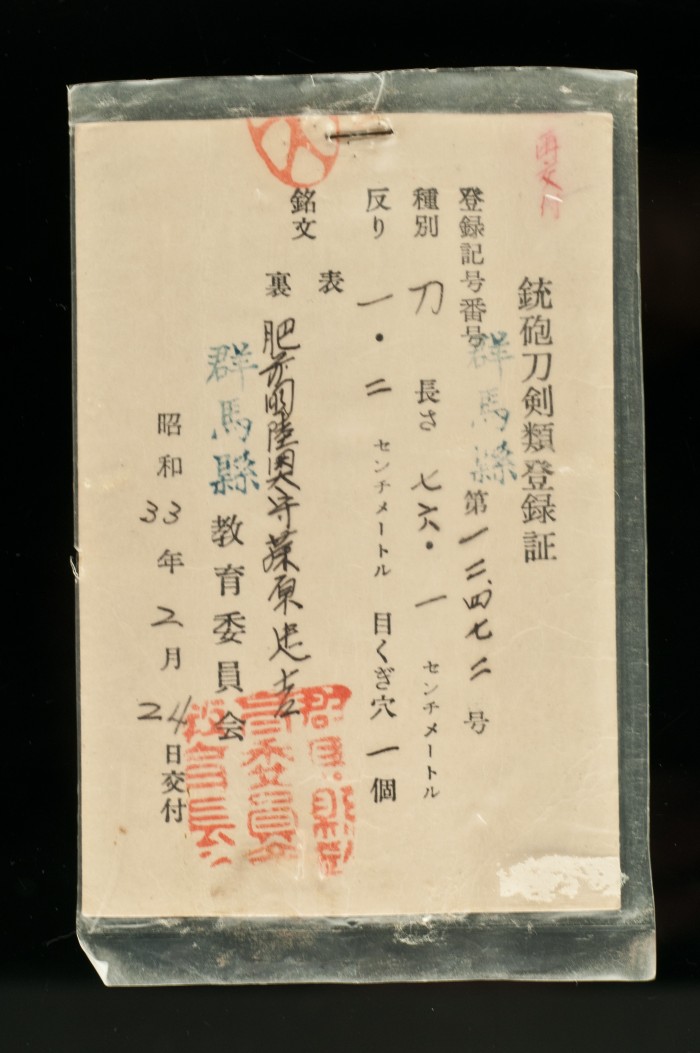 再交付
銃砲刀剣類登録証
登録記号番号 群馬縣 第一二,四七二号
種別 刀 長さ 七六・一 センチメートル
反り 一・二 センチメートル 目くぎ穴 一個
銘文 表
裏 肥前国陸奥守藤原忠吉
群馬縣教育委員会
昭和33年2月24日交付